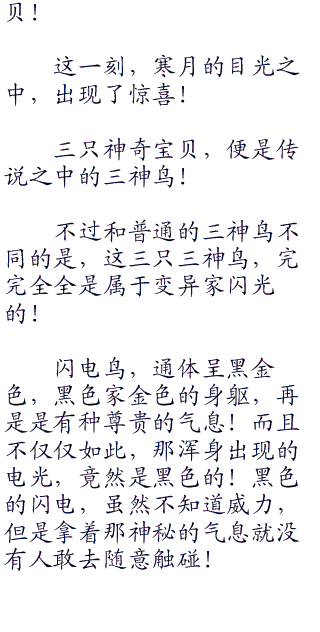 贝！
这一刻，寒月的目光之
中，出现了惊喜！
三只神奇宝贝，便是传
说之中的三神鸟！
不过和普通的三神鸟不
同的是，这三只三神鸟，完
完全全是属于变异家闪光
的！
闪电鸟，通体呈黑金
色，黑色家金色的身躯，再
是是有种尊贵的气息！而且
不仅仅如此，那浑身出现的
电光，竟然是黑色的！黑色
的闪电，虽然不知道威力，
但是拿着那神秘的气息就没
有人敢去随意触碰！